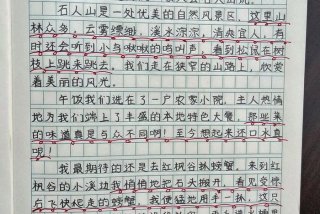 石人山是一处优美的自然风景区,这里山
林众多,云雾缥缈,溪水淙淙,清爽宜人,有
时还会听到小鸟啾啾的鸣叫声,看到松鼠在树
枝上跳来跳去。我们走在狭窄的山路上,欣赏
着美丽的风光。
午饭我们进在了一户农家小院。主人热情
地为我们端上了丰盛的本地特色大餐,那味来
的味道真是与众不同啊!至今想起来还口水直
呢!
我最期待的还是去红枫谷抓螃蟹。来到红
枫谷的小溪边我悄悄地把石头搬开,看见受惊
白飞快爬走的螃蟹,我便猛地用手一抓,这只